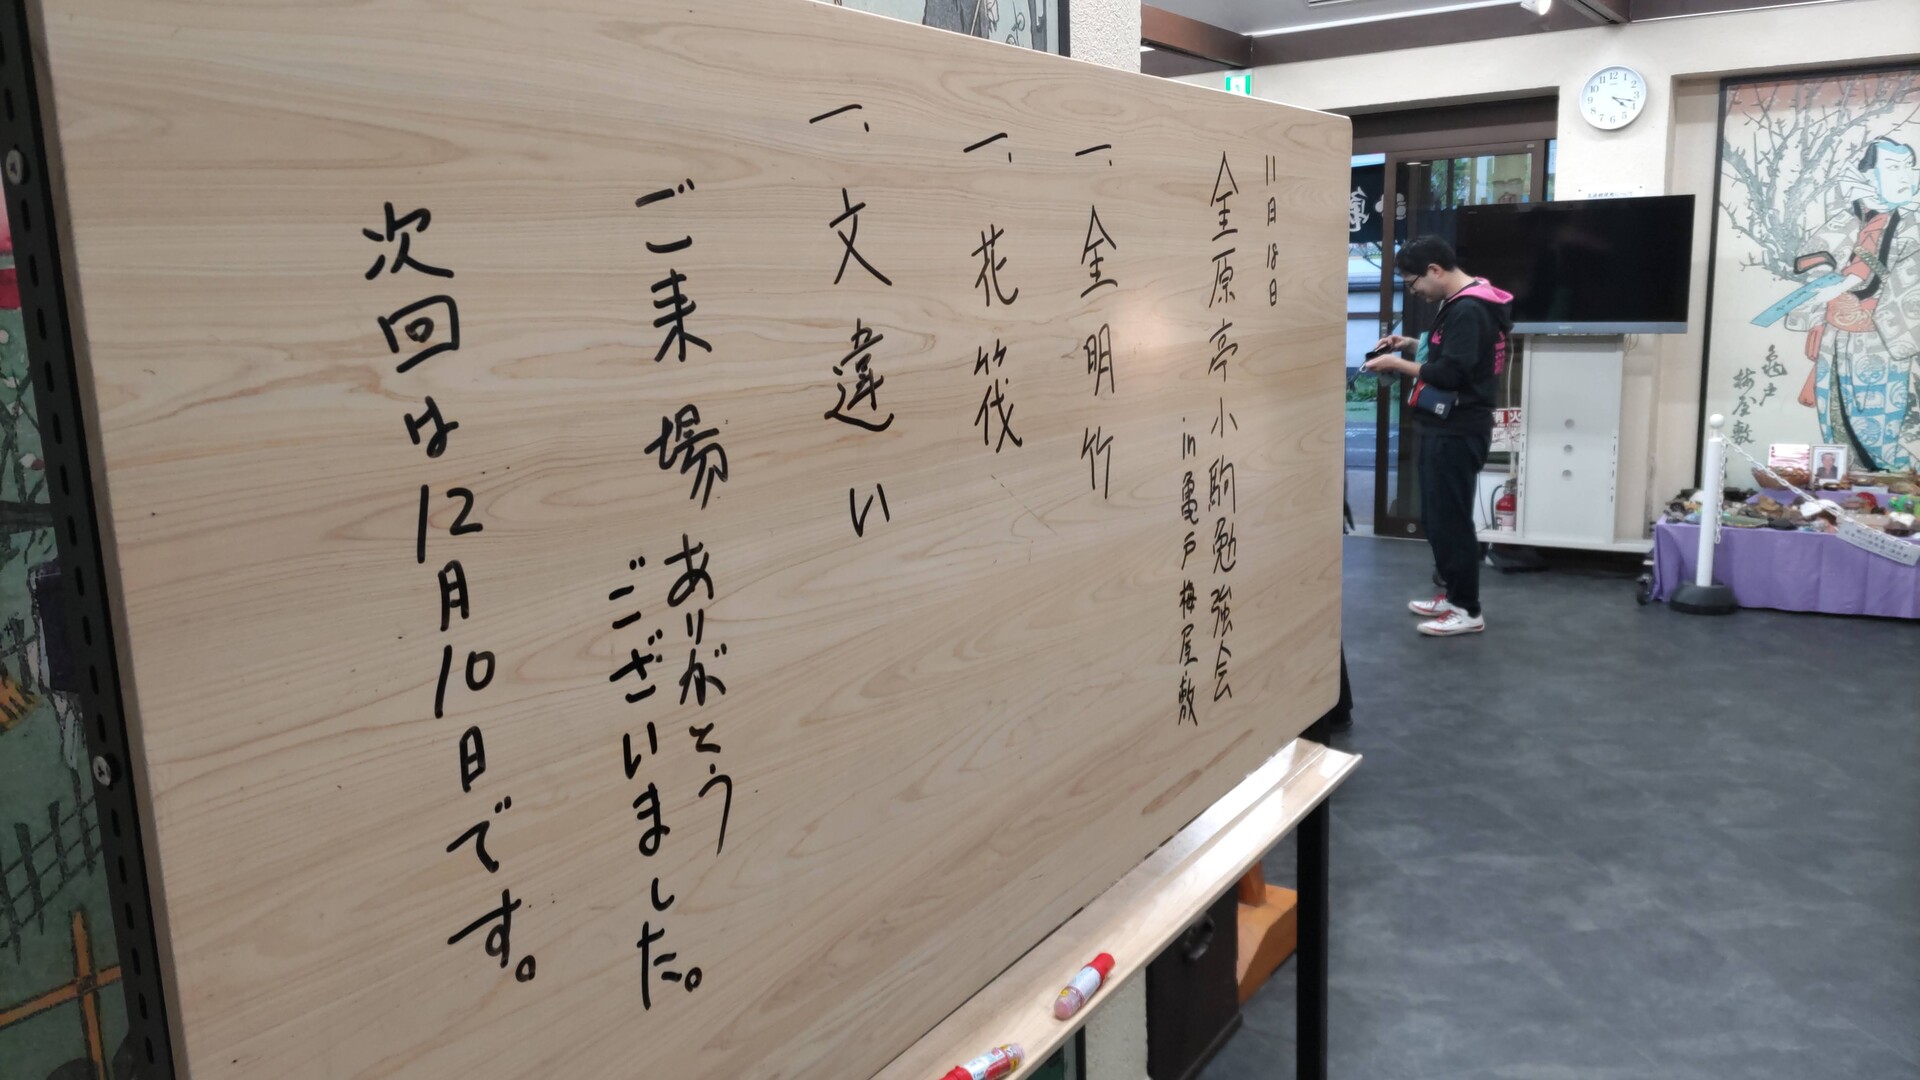 11月18日
金原亭小駒勉強会
in 亀戸梅屋敷
一、金明竹
一、花筏
一、文違い
ご来場ありがとう
ございました。
次回は12月10日です。
亀戸
梅屋敷